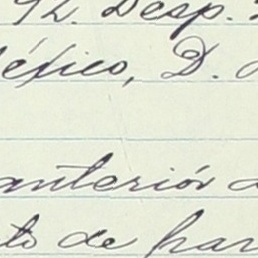 92. Desp.
México, D.
anteriór
to de